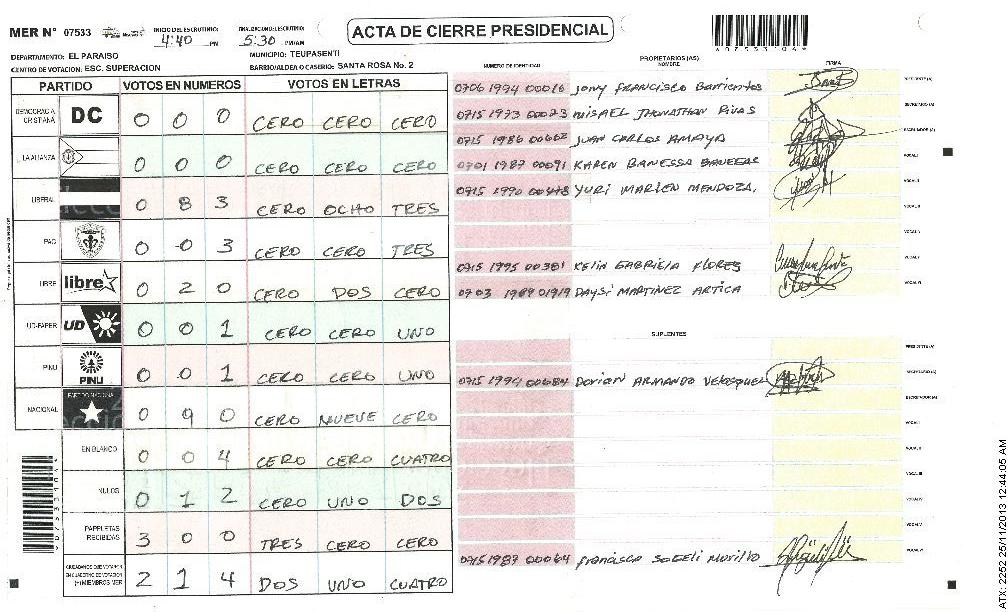 MER N° 07533
INICIO DEL ESCRUTINIO: 4:40 PM
FINALIZACION DEL ESCRUTINIO: 5:30 PM/AM
ACTA DE CIERRE PRESIDENCIAL
A 0 7 5 3 3 1 0 4 A
DEPARTAMENTO: EL PARAISO
MUNICIPIO: TEUPASENTI
CENTRO DE VOTACION: ESC. SUPERACION
BARRIO/ALDEA O CASERIO: SANTA ROSA No. 2
PARTIDO VOTOS EN NUMEROS VOTOS EN LETRAS
DEMOCRACIA CRISTIANA DC 0 0 0 CERO CERO CERO
LA ALIANZA 0 0 0 CERO CERO CERO
LIBERAL 0 8 3 CERO OCHO TRES
PAC 0 0 3 CERO CERO TRES
LIBRE libre 0 2 0 CERO DOS CERO
UD-FAPER UD 0 0 1 CERO CERO UNO
PINU PINU 0 0 1 CERO CERO UNO
NACIONAL PARTIDO NACIONAL 0 9 0 CERO NUEVE CERO
EN BLANCO 0 0 4 CERO CERO CUATRO
NULOS 0 1 2 CERO UNO DOS
PAPELETAS RECIBIDAS 3 0 0 TRES CERO CERO
CIUDADANOS QUE VOTARON EN CUADERNO DE VOTACION (+) MIEMBROS MER 2 1 4 DOS UNO CUATRO
PROPIETARIOS (AS)
NUMERO DE IDENTIDAD NOMBRE FIRMA
0706 1994 00016 Jony Francisco Barrientos PRESIDENTE (A)
0715 1973 00023 MISAEL JHONATHAN RIVAS SECRETARIO (A)
0715 1986 00662 JUAN CARLOS AMAYA ESCRUTADOR (A)
0701 1987 00091 KAREN BANESSA BANEGAS VOCAL I
0715 1990 00478 YURI MARLEN MENDOZA. VOCAL II
VOCAL III
VOCAL IV
0715 1995 00381 KELIN GABRIELA FLORES VOCAL V
0703 1989 01919 DAYSI MARTINEZ ARTICA VOCAL VI
SUPLENTES
PRESIDENTE (A)
0715 1994 00684 Dorian ARMANDO VELASQUEZ SECRETARIO (A)
ESCRUTADOR (A)
VOCAL I
VOCAL II
VOCAL III
VOCAL IV
VOCAL V
0715 1987 00064 Francisca Sogeli Murillo VOCAL VI
ATX: 2252 25/11/2013 12:44:05 AM